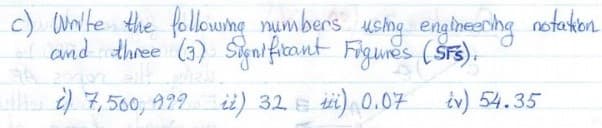 c) Write the following numbers using engineering notation
and three (3) Significant Figures (SFs).
i) 7,500,999 ii) 32 iii) 0.07 iv) 54.35